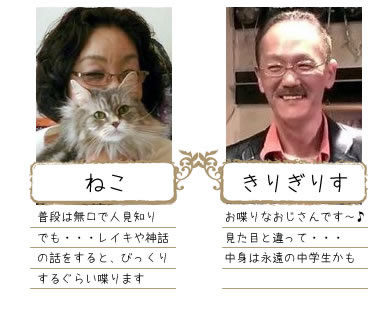 ねこ
きりぎりす
普段は無口で人見知り
でも・・・レイキや神話
の話をすると、びっくり
するぐらい喋ります
お喋りなおじさんです～♪
見た目と違って・・・
中身は永遠の中学生かも